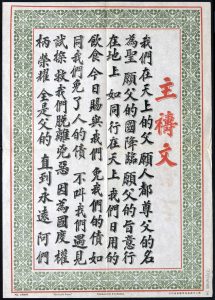 主禱文
我們在天上的父 願人都尊父的名
為聖 願父的國降臨 願父的旨意行
在地上 如同行在天上 我們日用的
飲食 今日賜與我們 免我們的債 如
同我們免了人的債 不叫我們遇見
試探 救我們脫離兇惡 因為國度權
柄榮耀 全是父的 直到永遠 阿們